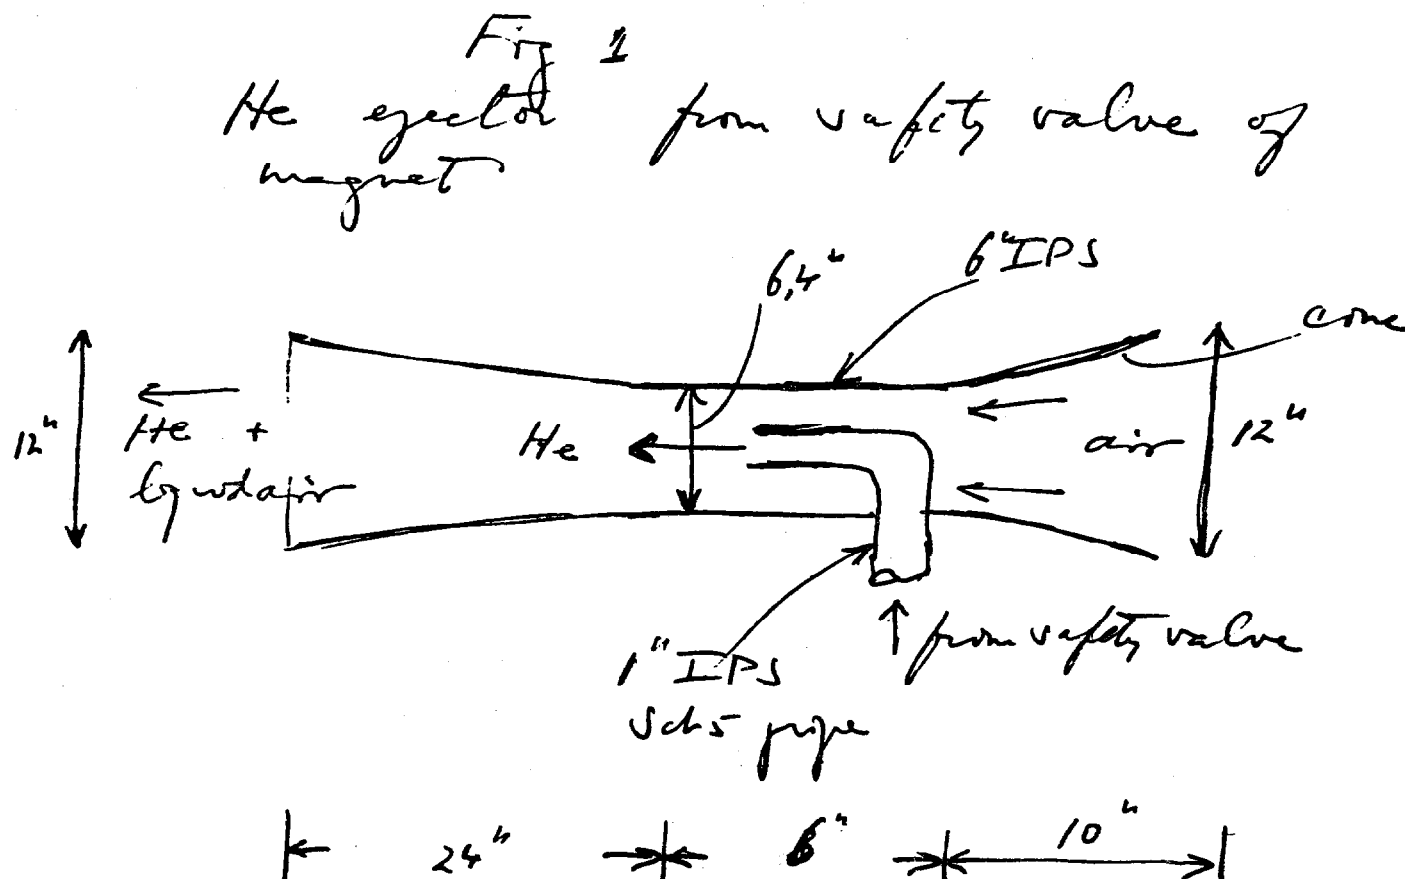 Fig 1
He ejector from safety valve of
magnet
6,4"
6" IPS
cone
12"
He +
liquid air
He
air
12"
from safety valve
1" IPS
Sch 5 pipe
24"
6"
10"